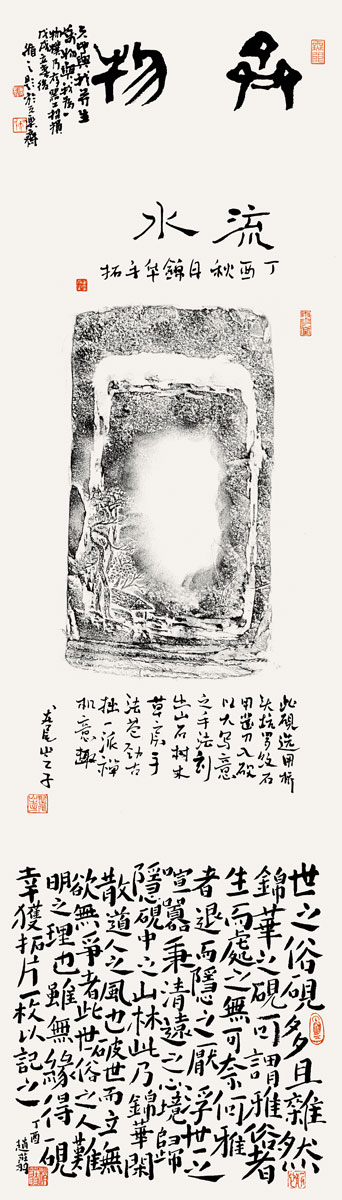 物
天地與我并生
萬物與我為一
流水
丁酉秋月錦華手拓
此硯選用
羅紋石
用鑿刀入硯
以大寫意
之手法刻
出山石樹木
草廬手
法蒼勁古
拙一派禪
机意趣
世之俗硯多且雜然
錦華之硯可謂雅俗者
生而處之無可奈何雅
者退而隱之厭浮世之
喧囂秉清遠之心境歸
隱硯中之山林此乃錦華閑
散道人之風也彼世而立無
欲無爭者此世俗之人難
明之理也雖無緣得一硯
幸獲拓片一枚以記之
丁酉